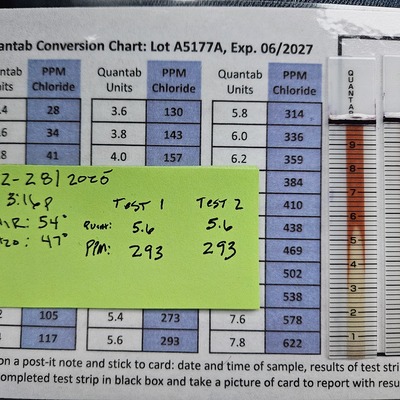 antab Conversion Chart: Lot A5177A, Exp. 06/2027
antab PPM Quantab PPM Quantab PPM
its Chloride Units Chloride Units Chloride
.4 28 3.6 130 5.8 314
.6 34 3.8 143 6.0 336
.8 41 4.0 157 6.2 359
384
410
438
469
502
538
.2 105 5.4 273 7.6 578
.4 117 5.6 293 7.8 622
2-28/2025
3:16p
AIR: 54°
H2O: 47°
TEST 1 TEST 2
QUANT: 5.6 5.6
PPM: 293 293
on a post-it note and stick to card: date and time of sample, results of test stri
ompleted test strip in black box and take a picture of card to report with resu
QUANTAB
9
8
7
6
5
4
3
2
1